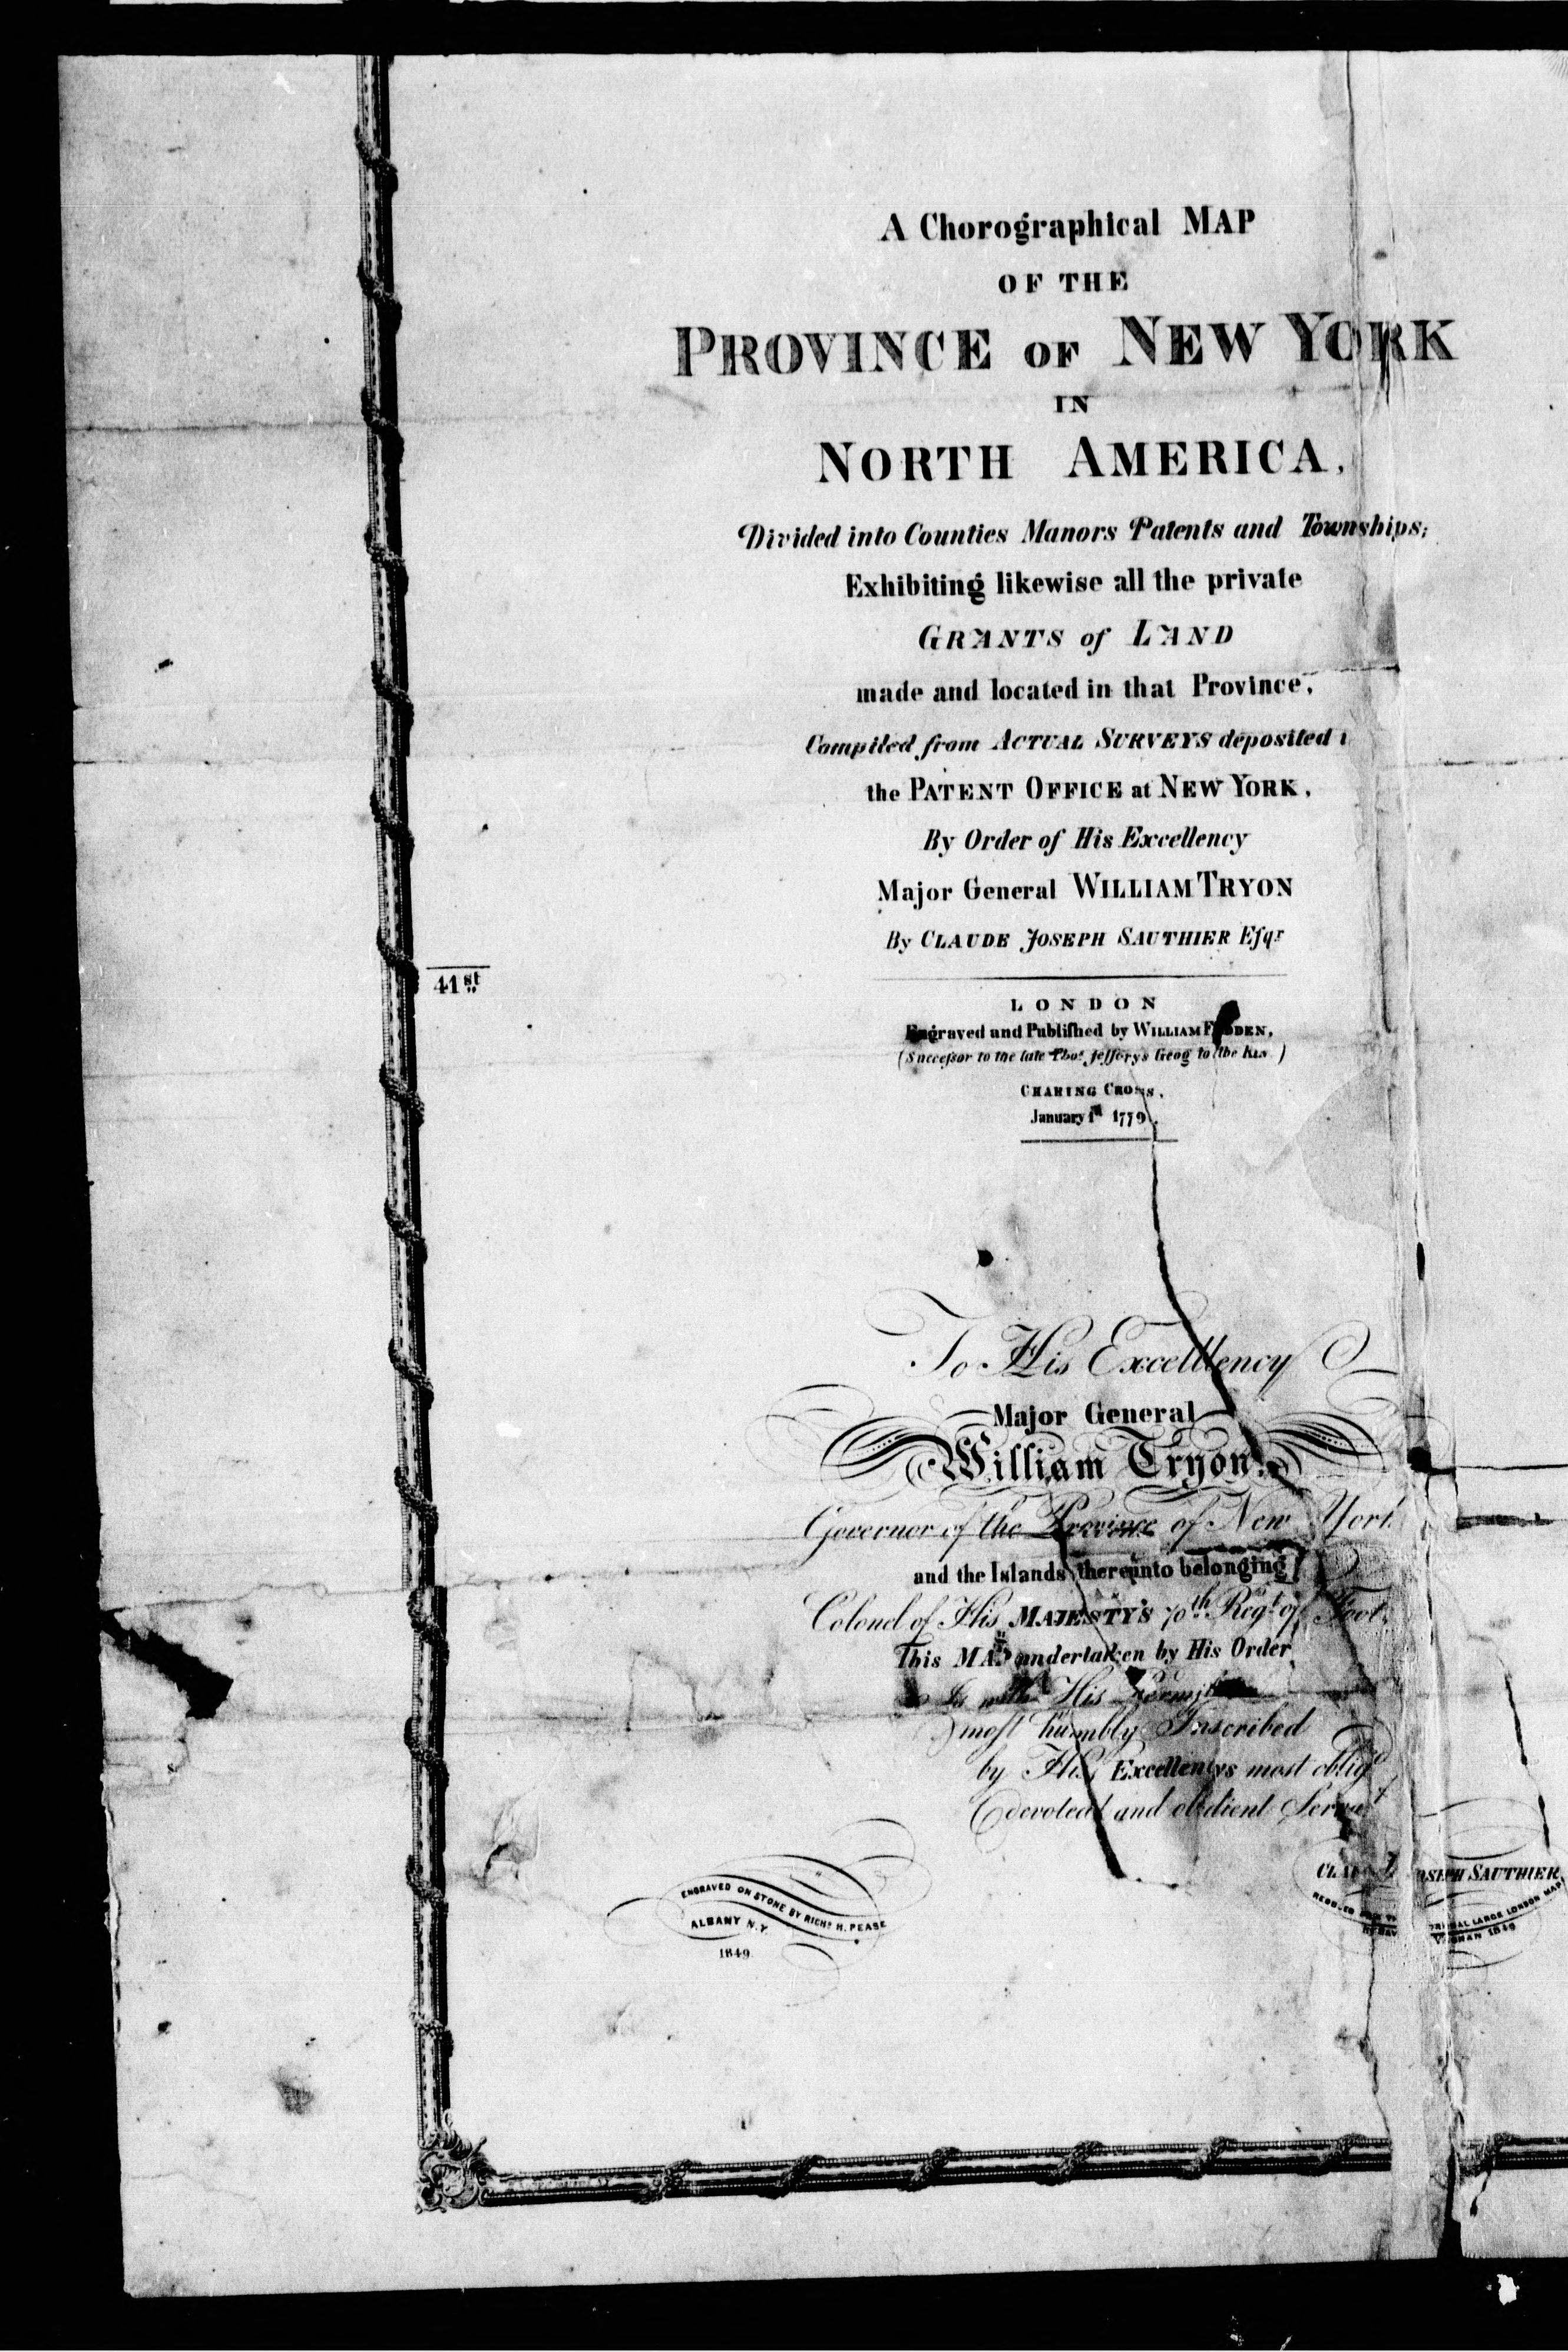 A Chorographical MAP
OF THE
PROVINCE OF NEW YORK
IN
NORTH AMERICA,
Divided into Counties Manors Patents and Townships;
Exhibiting likewise all the private
GRANTS of LAND
made and located in that Province,
Compiled from ACTUAL SURVEYS deposited i
the PATENT OFFICE at NEW YORK,
By Order of His Excellency
Major General WILLIAM TRYON
By CLAUDE JOSEPH SAUTHIER Eſqr
41st
LONDON
Engraved and Publiſhed by WILLIAM FADDEN,
(Succeſsor to the late Thos. Jefferys Geog to the Kin )
CHARING CROSS,
January 1st 1779.
To His Excelllency
Major General
William Tryon
Governor of the Province of New York
and the Islands thereunto belonging
Colonel of His MAJESTY'S 70th Regt. of Foot,
This MAP undertaken by His Order
Is with His
moſt humbly Inscribed
by His Excellencys most oblig'd
devoted and obedient Servant
CLAUDE JOSEPH SAUTHIER
ENGRAVED ON STONE BY RICHD. H. PEASE
ALBANY N.Y.
1849.
LARGE LONDON MAP
1849